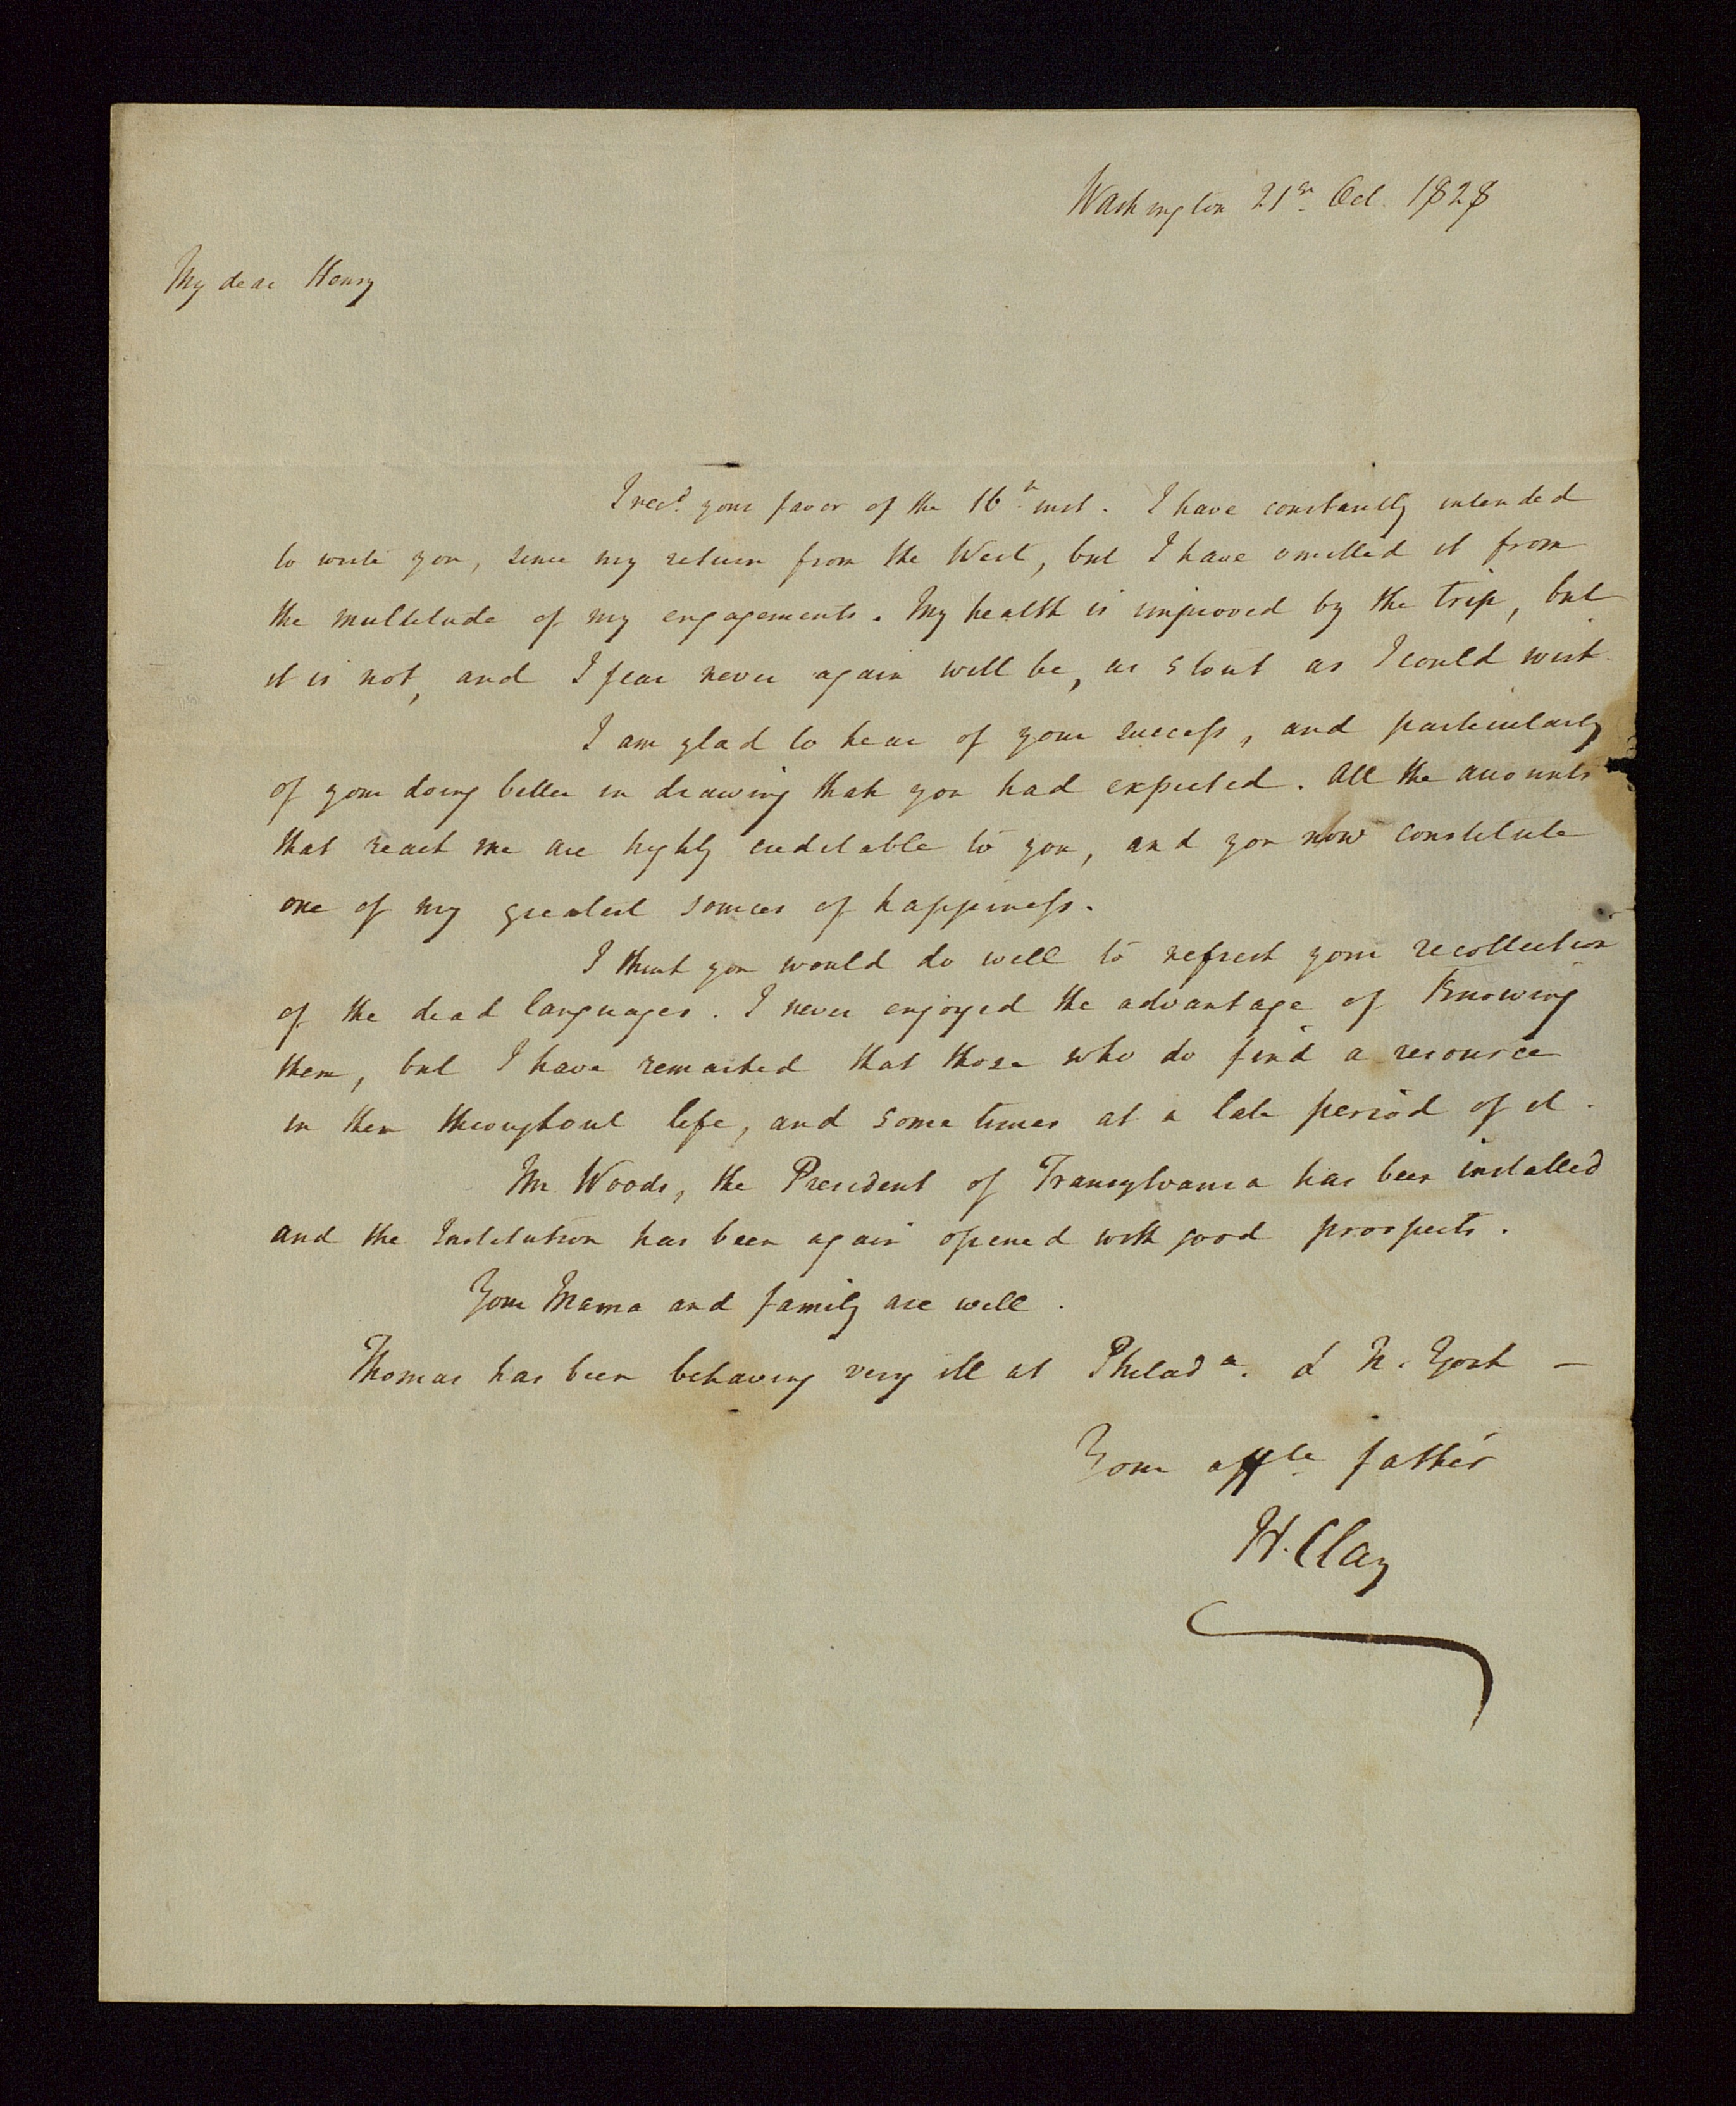 Washington 21st Oct. 1828
My dear Henry
I recd. your favor of the 16h. inst. I have constantly intended
to write you, since my return from the West, but I have omitted it from
the multitude of my engagements. My health is improved by the trip, but
it is not, and I fear never again will be, as stout as I could wish.
I am glad to hear of your success, and particularly
of your doing better in drawing that you had expected. All the accounts
that reach me are highly creditable to you, and you now constitute
one of my greatest sources of happiness.
I think you would do well to refresh your recollection
of the dead languages. I never enjoyed the advantage of Knowing
them, but I have remarked that those who do find a resource
in them throughout life, and some times at a late period of it.
Mr. Woods, the President of Transylvania has been installed
and the Institution has been again opened with good prospects.
Your Mama and family are well.
Thomas has been behaving very ill at Philada. & N. York —
Your affte father
H. Clay